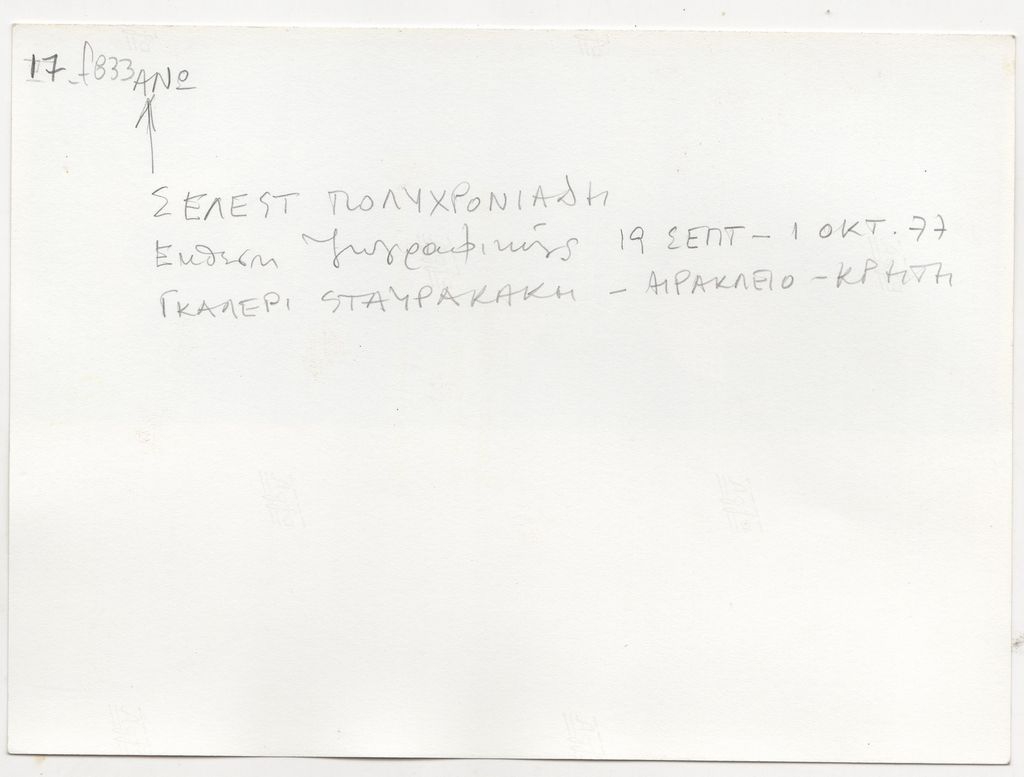 17_f833 ΑΝΩ
ΣΕΛΕΣΤ ΠΟΛΥΧΡΟΝΙΑΔΗ
Εκθεση Ζωγραφικής 19 ΣΕΠΤ - 1 ΟΚΤ. 77
ΓΚΑΛΕΡΙ ΣΤΑΥΡΑΚΑΚΗ - ΗΡΑΚΛΕΙΟ - ΚΡΗΤΗ